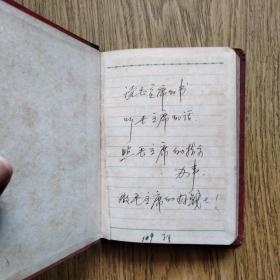 读毛主席的书
听毛主席的话
照毛主席的指示
办事
做毛主席的好战士
109